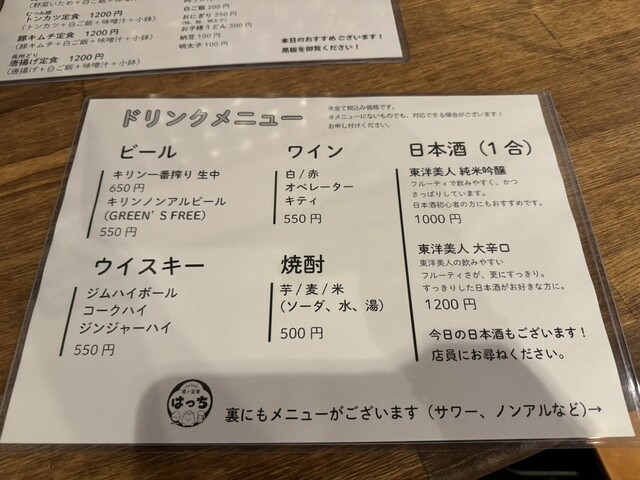 (野菜いため+白ご飯+味噌汁+小鉢)
むつみ豚
トンカツ定食 1200円
(トンカツ+白ご飯+味噌汁+小鉢)
豚キムチ定食 1200円
(豚キムチ+白ご飯+味噌汁+小鉢)
長州どり
唐揚げ定食 1200円
(唐揚げ+白ご飯+味噌汁+小鉢)
白ご飯 200円
おにぎり 250円
お子様うどん 300円
納豆 100円
明太子 100円
本日のおすすめ ございます!
黒板を御覧ください!
ドリンクメニュー
※全て税込み価格です。
※メニューにないものでも、対応できる場合がございます!
お申し付けください。
ビール
キリン一番搾り 生中
650円
キリンノンアルビール
(GREEN'S FREE)
550円
ウイスキー
ジムハイボール
コークハイ
ジンジャーハイ
550円
ワイン
白/赤
オペレーター
キティ
550円
焼酎
芋/麦/米
(ソーダ、水、湯)
500円
日本酒(1合)
東洋美人 純米吟醸
フルーティで飲みやすく、かつ
さっぱりしています。
日本酒初心者の方にもおすすめです。
1000円
東洋美人 大辛口
東洋美人の飲みやすい
フルーティさが、更にすっきり。
すっきりした日本酒がお好きな方に。
1200円
今日の日本酒もございます!
店員にお尋ねください。
酒と定食
はっち
裏にもメニューがございます(サワー、ノンアルなど)→